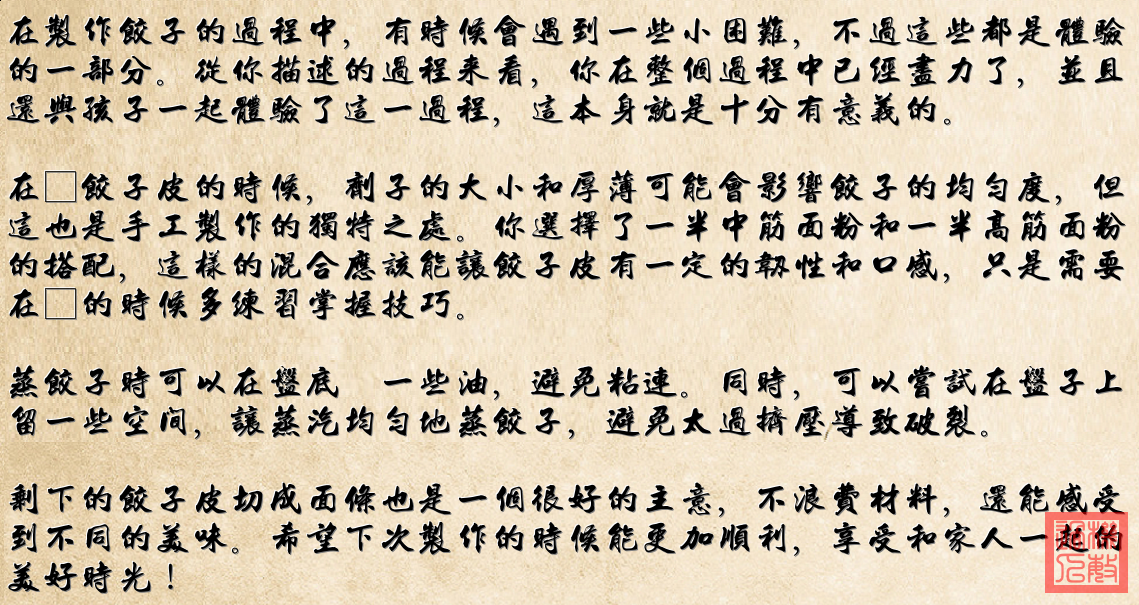 在製作餃子的過程中，有時候會遇到一些小困難，不過這些都是體驗
的一部分。從你描述的過程來看，你在整個過程中已經盡力了，並且
還與孩子一起體驗了這一過程，這本身就是十分有意義的。
在□餃子皮的時候，劑子的大小和厚薄可能會影響餃子的均勻度，但
這也是手工製作的獨特之處。你選擇了一半中筋面粉和一半高筋面粉
的搭配，這樣的混合應該能讓餃子皮有一定的韌性和口感，只是需要
在□的時候多練習掌握技巧。
蒸餃子時可以在盤底　一些油，避免粘連。同時，可以嘗試在盤子上
留一些空间，讓蒸汽均勻地蒸餃子，避免太過擠壓導致破裂。
剩下的餃子皮切成面條也是一個很好的主意，不浪費材料，還能感受
到不同的美味。希望下次製作的時候能更加順利，享受和家人一起的
美好時光！